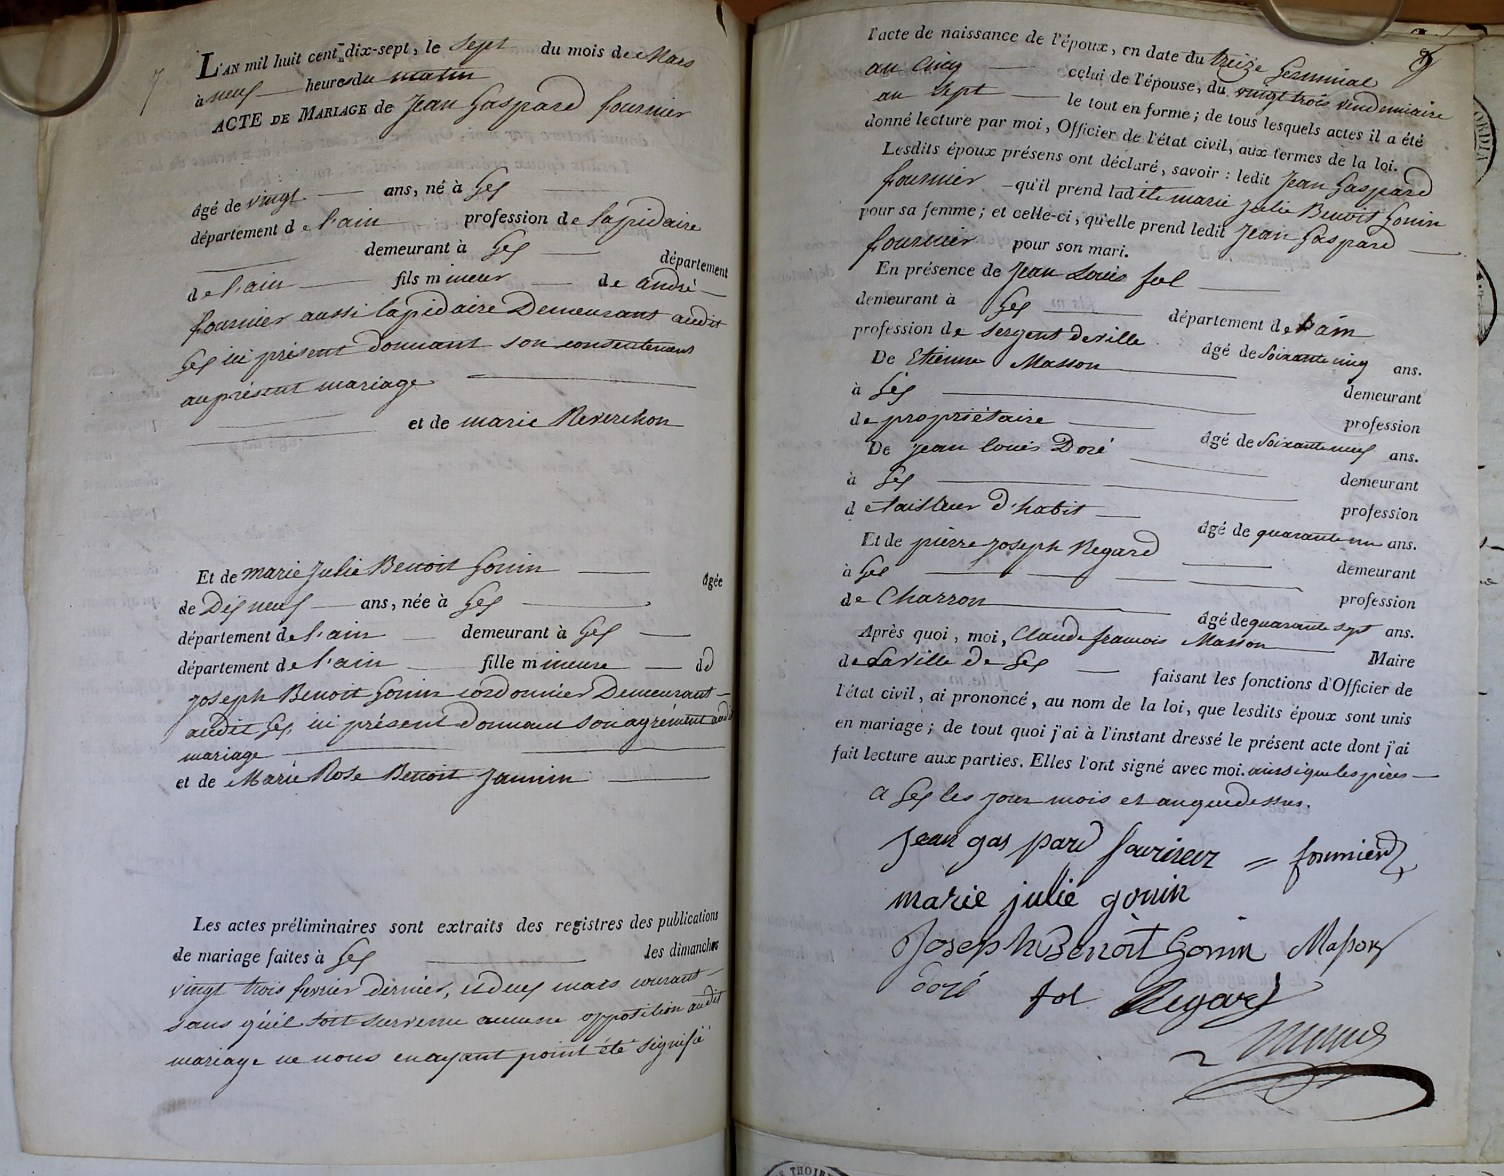 7
L'AN mil huit cent dix-sept, le sept du mois de Mars
à neuf heures du matin
ACTE DE MARIAGE de Jean Gaspard fournier
âgé de vingt ans, né à Gex
département de l'ain profession de lapidaire
demeurant à Gex département
de l'ain fils mineur de andré
fournier aussi lapidaire Demeurant audit
Gex ici présent donnant son consentement
au présent mariage
et de marie Reverchon
Et de marie Julie Benoit Gonin âgée
de Dix neuf ans, née à Gex
département de l'ain demeurant à Gex
département de l'ain fille mineure de
joseph Benoit Gonin cordonnier Demeurant
audit Gex, ici présent donnant son agrément audit
mariage
et de Marie Rose Benoit Jannin
Les actes préliminaires sont extraits des registres des publications
de mariage faites à Gex les dimanches
vingt trois fevrier dernier, et deux mars courant
sans qu'il soit survenu aucune opposition audit
mariage ne nous en ayant point été signifié
l'acte de naissance de l'époux, en date du treize Germinal
an Cinq celui de l'épouse, du vingt trois vendemiaire
an Sept le tout en forme ; de tous lesquels actes il a été
donné lecture par moi, Officier de l'état civil, aux termes de la loi.
Lesdits époux présens ont déclaré, savoir : ledit Jean Gaspard
fournier qu'il prend ladite marie Julie Benoit Gonin
pour sa femme ; et celle-ci, qu'elle prend ledit Jean Gaspard
fournier pour son mari.
En présence de Jean Louis fol
demeurant à Gex département de l'ain
profession de sergent de ville âgé de Soixante cinq ans.
De Etienne Masson demeurant
à Gex profession
de propriétaire âgé de Soixante neuf ans.
De jean louis Doré demeurant
à Gex profession
de tailleur d'habit âgé de quarante un ans.
Et de pierre joseph Regard demeurant
à Gex profession
de Charron âgé de quarante sept ans.
Après quoi, moi, Claude francois Masson Maire
de La ville de Gex faisant les fonctions d'Officier de
l'état civil, ai prononcé, au nom de la loi, que lesdits époux sont unis
en mariage ; de tout quoi j'ai à l'instant dressé le présent acte dont j'ai
fait lecture aux parties. Elles l'ont signé avec moi. ainsi que les pères
a Gex les jour mois et an que dessus.
Jean gas pard fournier = fournier
marie julie gonin
Joseph Benoit Gonin Masson
Doré fol Regard